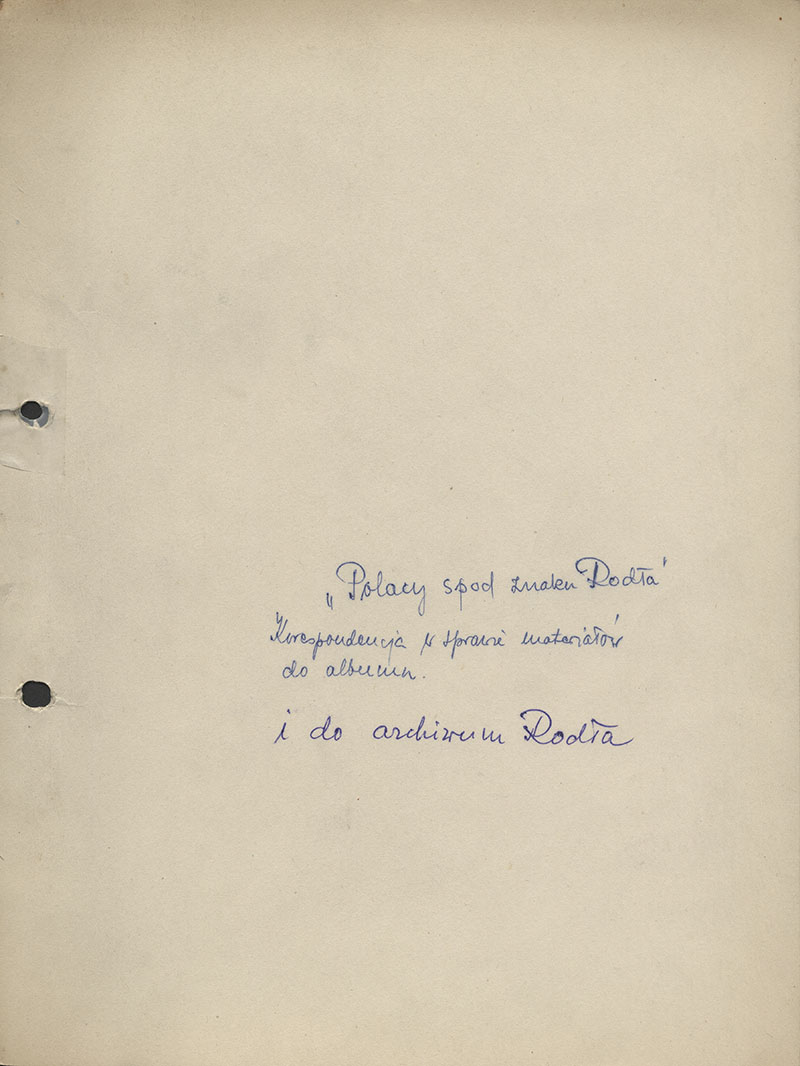 „Polacy spod znaku Rodła”
Korespondencja w sprawie materiałów
do albumu.
i do archiwum Rodła